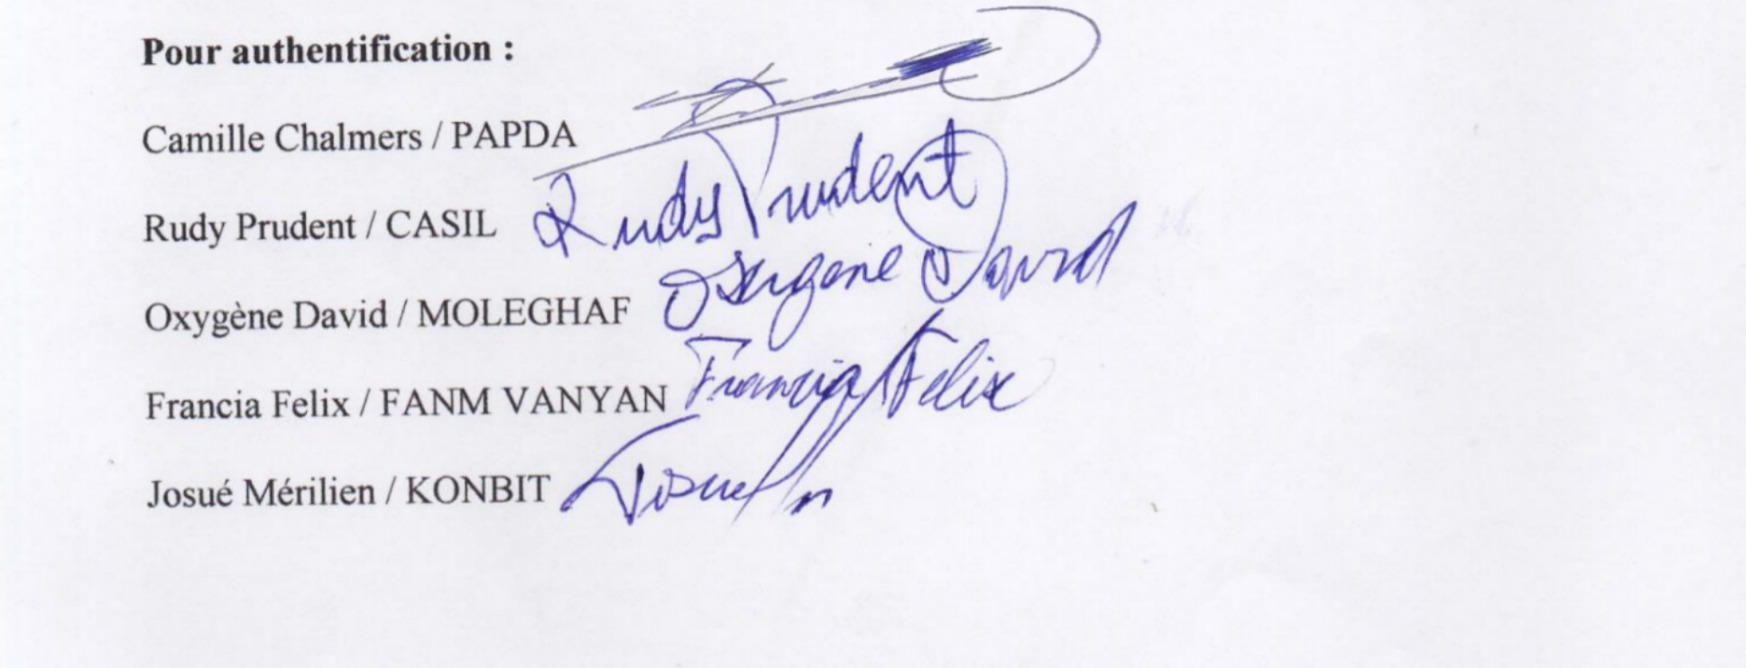 Pour authentification :
Camille Chalmers / PAPDA
Rudy Prudent / CASIL Rudy Prudent
Oxygène David / MOLEGHAF Oxygene David
Francia Felix / FANM VANYAN Francia Felix
Josué Mérilien / KONBIT Josue